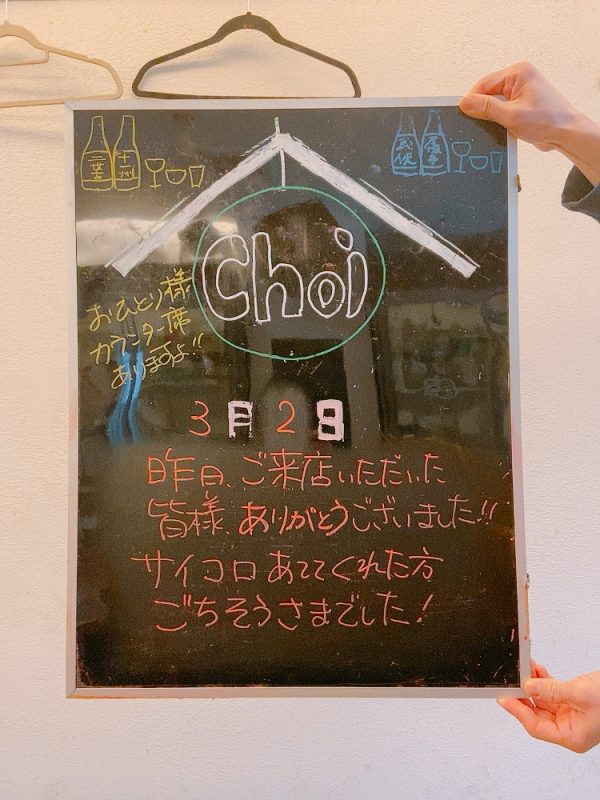 十一州
Choi
おひとり様
カウンター席
ありますよ!!
3月2日
昨日、ご来店いただいた
皆様、ありがとうございました!!
サイコロあててくれた方
ごちそうさまでした!